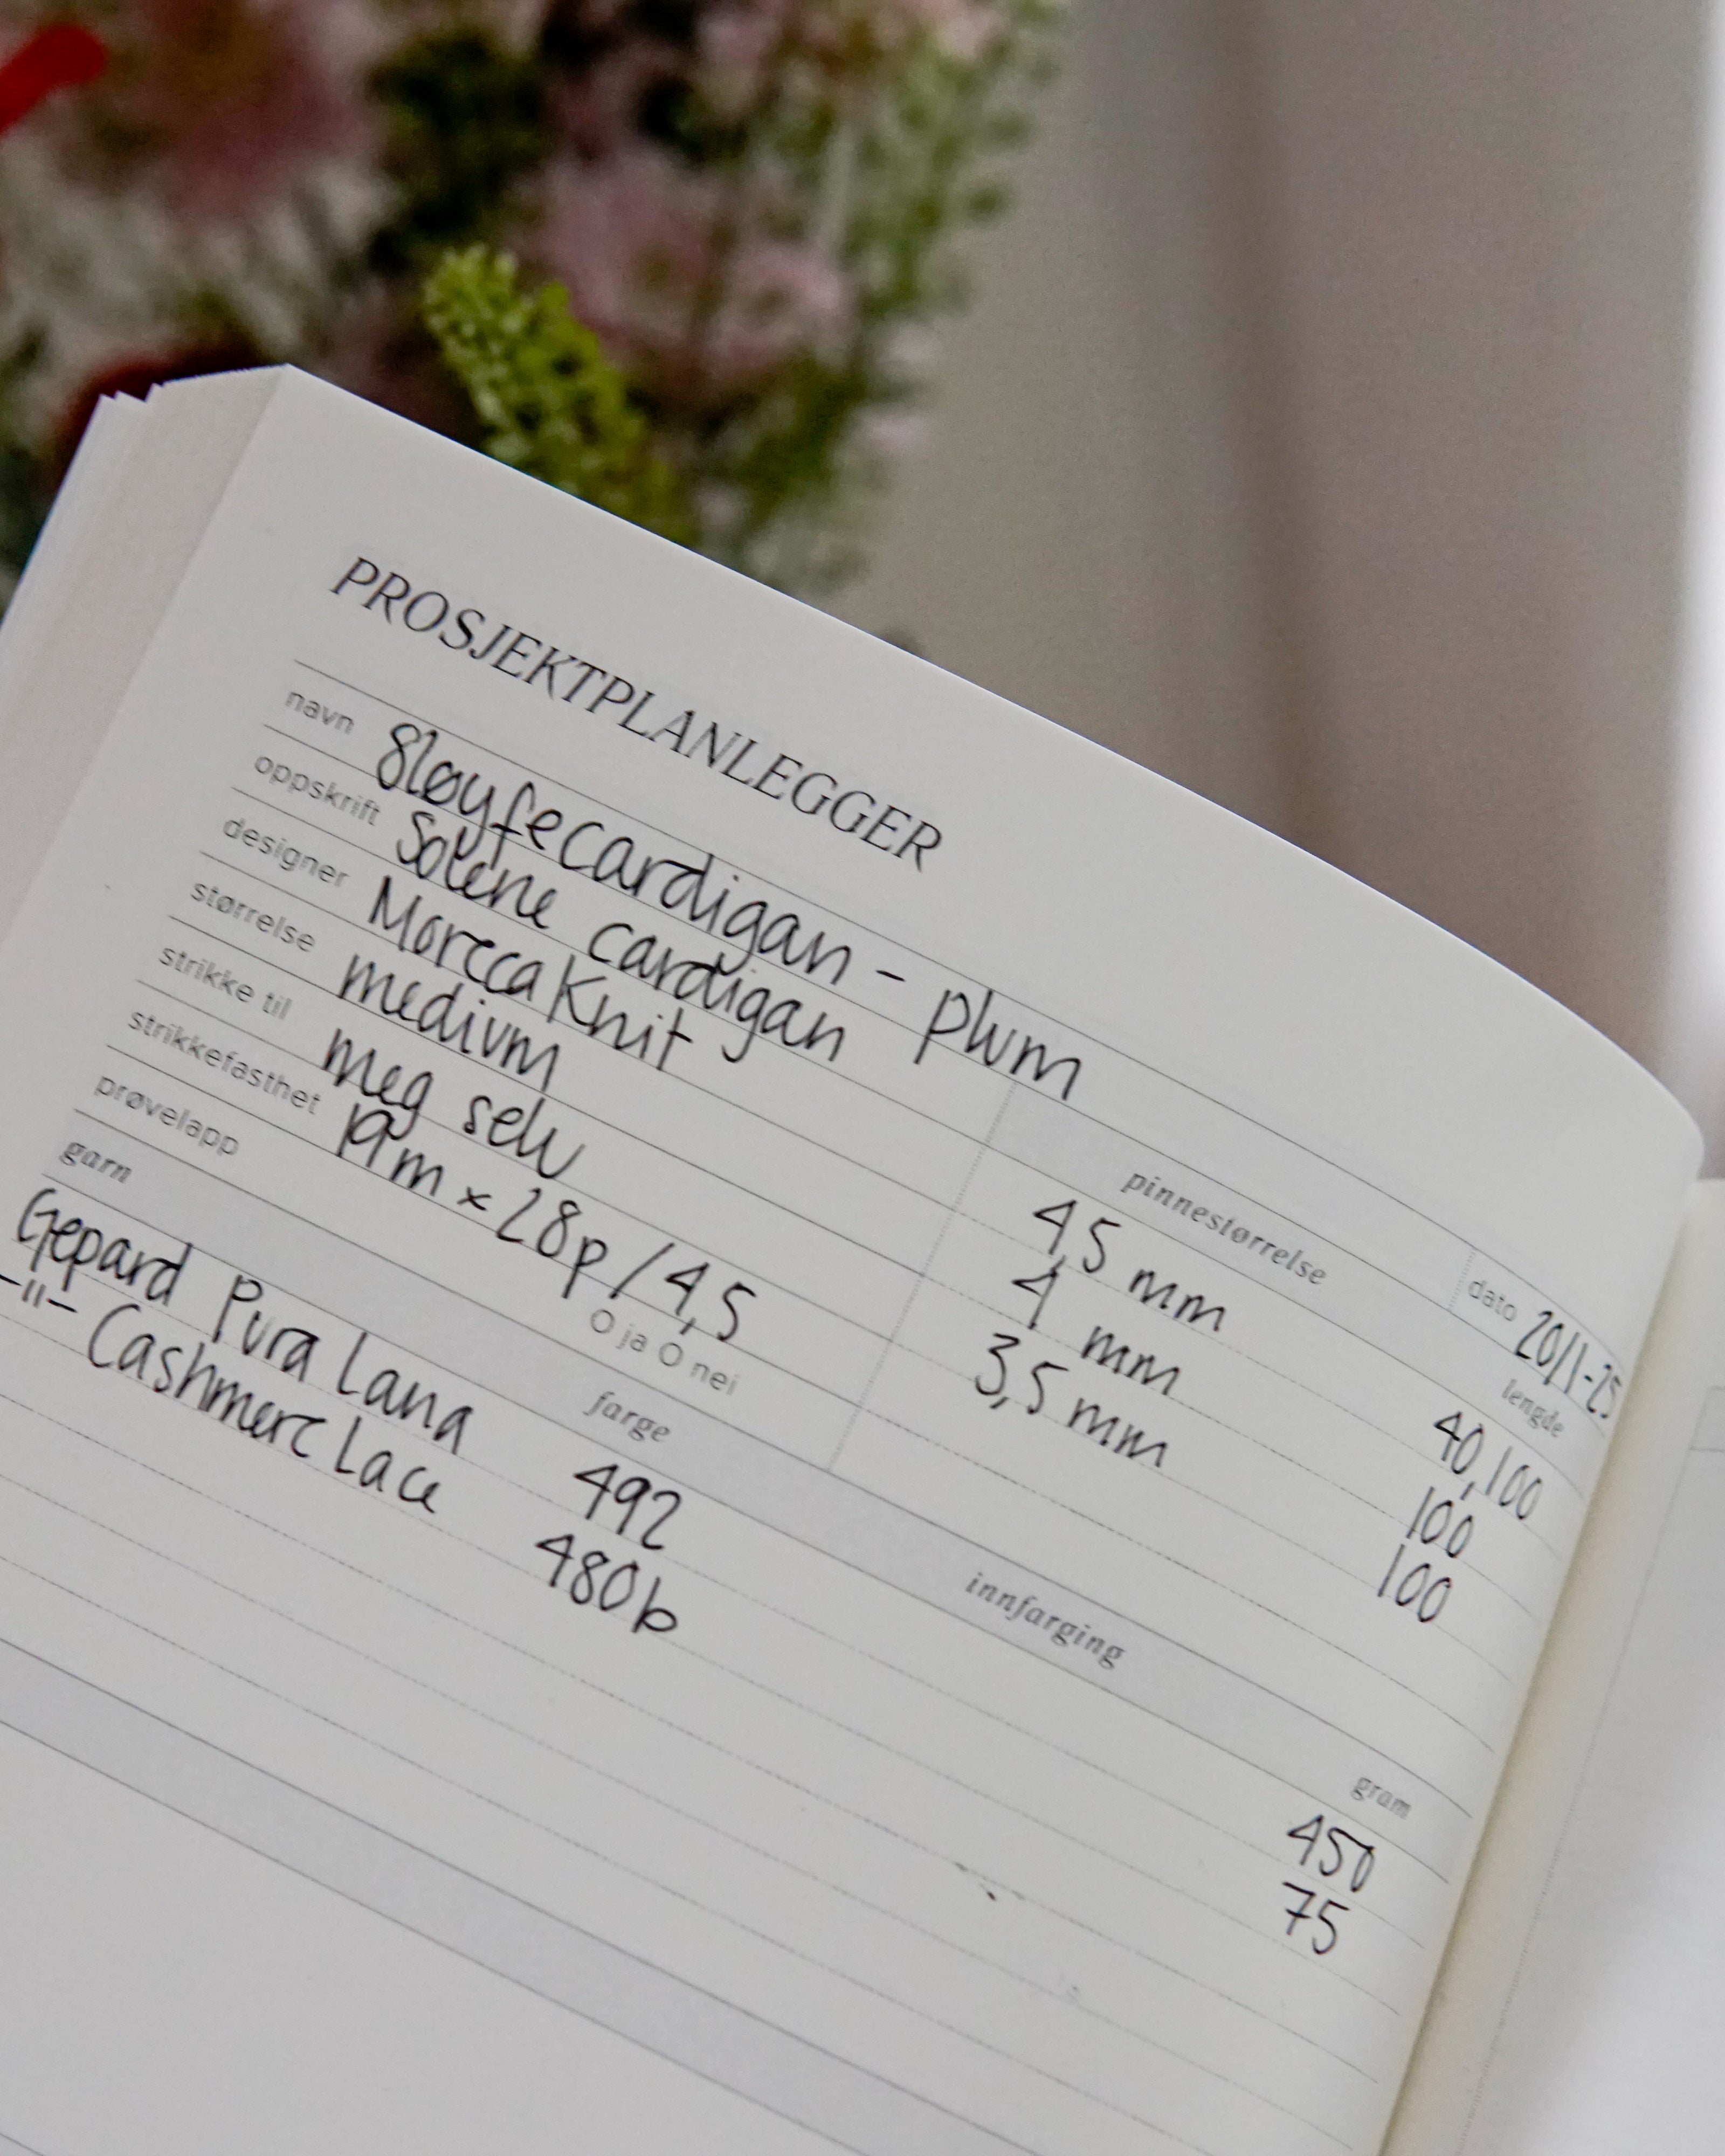 PROSJEKTPLANLEGGER
navn Sløyfecardigan - plum
dato 20/1-25
oppskrift Solene cardigan
designer MorecaKnit
størrelse medium
strikke til meg selv
strikkefasthet 19m x 28p / 4,5
prøvelapp O ja O nei
pinnestørrelse lengde
4,5 mm 40,100
4 mm 100
3,5 mm 100
garn farge innfarging gram
Gepard Pura Lana 492 450
-"- Cashmere Lace 480b 75